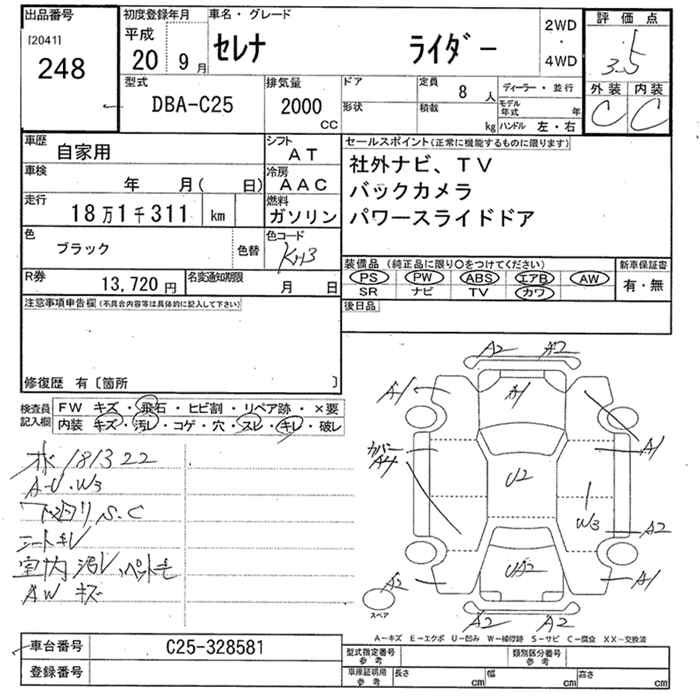 出品番号
[2041]
248
初度登録年月
平成
20 9月
車名・グレード
セレナ ライダー
2WD
・
4WD
評価点
3.5
外装 内装
C C
型式
DBA-C25
排気量
2000
CC
ドア
形状
定員
8人
積載
kg
ディーラー・並行
モデル年式 年
ハンドル 左・右
車歴
自家用
シフト
AT
車検
年 月( 日)
冷房
AAC
走行
18万1千311 km
燃料
ガソリン
色
ブラック
色替
色コード
KH3
R券
13,720円
名変通知期限
月 日
セールスポイント(正常に機能するものに限ります)
社外ナビ、TV
バックカメラ
パワースライドドア
装備品 (純正品に限り○をつけてください)
PS PW ABS エアB AW
SR ナビ TV カワ
新車保証書
有・無
後日品
注意事項申告欄(不具合内容等は具体的に記入して下さい)
修復歴 有〔箇所 〕
検査員記入欄
FW キズ・飛石・ヒビ割・リペア跡・×要
内装 キズ・汚レ・コゲ・穴・スレ・キレ・破レ
181322
A-U.W3
下回りS.C
シートキレ
室内汚レ.ペット毛
AW キズ
A2 A2
A1 A1
カバー
A4
A1
U2
W3
A2
A2
UA2
A1
スペア
A2 A2
A-キズ E-エクボ U-凹み W-補修跡 S-サビ C-腐食 XX-交換済
車台番号
C25-328581
登録番号
型式指定番号
参考
類別区分番号
参考
車庫証明用
参考
長さ cm
幅 cm
高さ cm